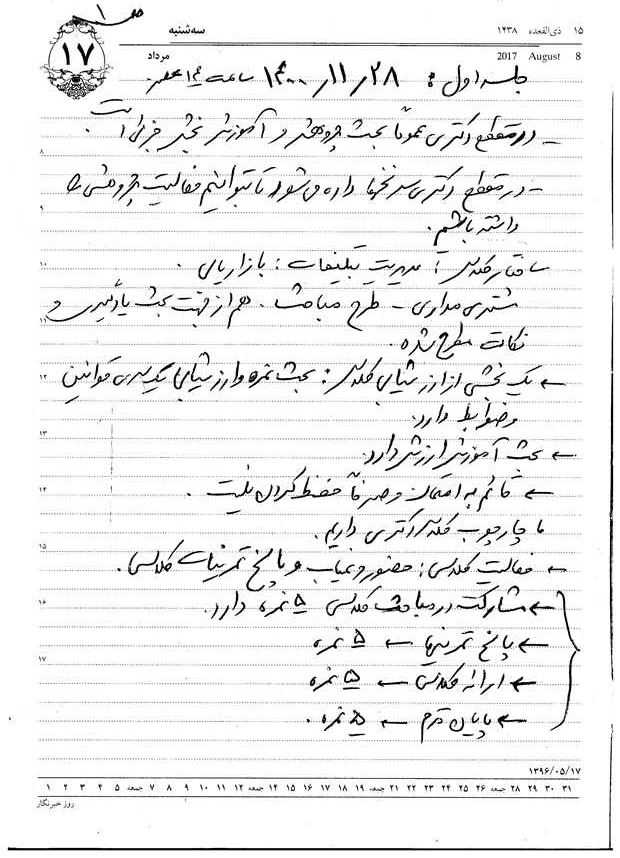 صفحه ۱
۱۵ ذی‌القعده ۱۴۳۸
سه‌شنبه
۱۷
مرداد
2017 August 8
جلسه اول : ۱۴۰۰/۱۱/۲۸ ساعت ۱۴ عصر
ـ در مقطع دکتری عموماً بحث پژوهش و آموزش بخش جزئی است.
ـ در مقطع دکتری سرنخها داده می‌شود تا بتوانیم فعالیت پژوهشی را
داشته باشیم.
ساختار کلاس : مدیریت تبلیغات : بازاریابی .
مشتری مداری ـ طرح مباحث . هم از جهت بحث یادگیری و
نکات مطرح شده .
← یک بخشی از ارزشیابی کلاس : بحث نمره و ارزشیابی یک سری قوانین
وضوابط دارد.
← بحث آموزش ارزش دارد.
← قائم به امتحان و صرفاً حفظ کردن نیست .
ما چارچوب کلاس دکتری داریم.
← فعالیت کلاسی : حضور و غیاب و پاسخ تمرینات کلاسی .
← مشارکت در مباحث کلاسی ۵ نمره دارد.
← پاسخ تمرینها ← ۵ نمره
← ارائه کلاسی ← ۵ نمره
← پایان ترم ← ۵ نمره .
۸
۹
۱۰
۱۱
۱۲
۱۳
۱۴
۱۵
۱۶
۱۷
۱۳۹۶/۰۵/۱۷
۱ ۲ ۳ ۴ ۵ جمعه ۷ ۸ ۹ ۱۰ ۱۱ ۱۲ جمعه ۱۴ ۱۵ ۱۶ ۱۷ ۱۸ ۱۹ جمعه ۲۱ ۲۲ ۲۳ ۲۴ ۲۵ ۲۶ جمعه ۲۸ ۲۹ ۳۰ ۳۱
روز خبرنگار